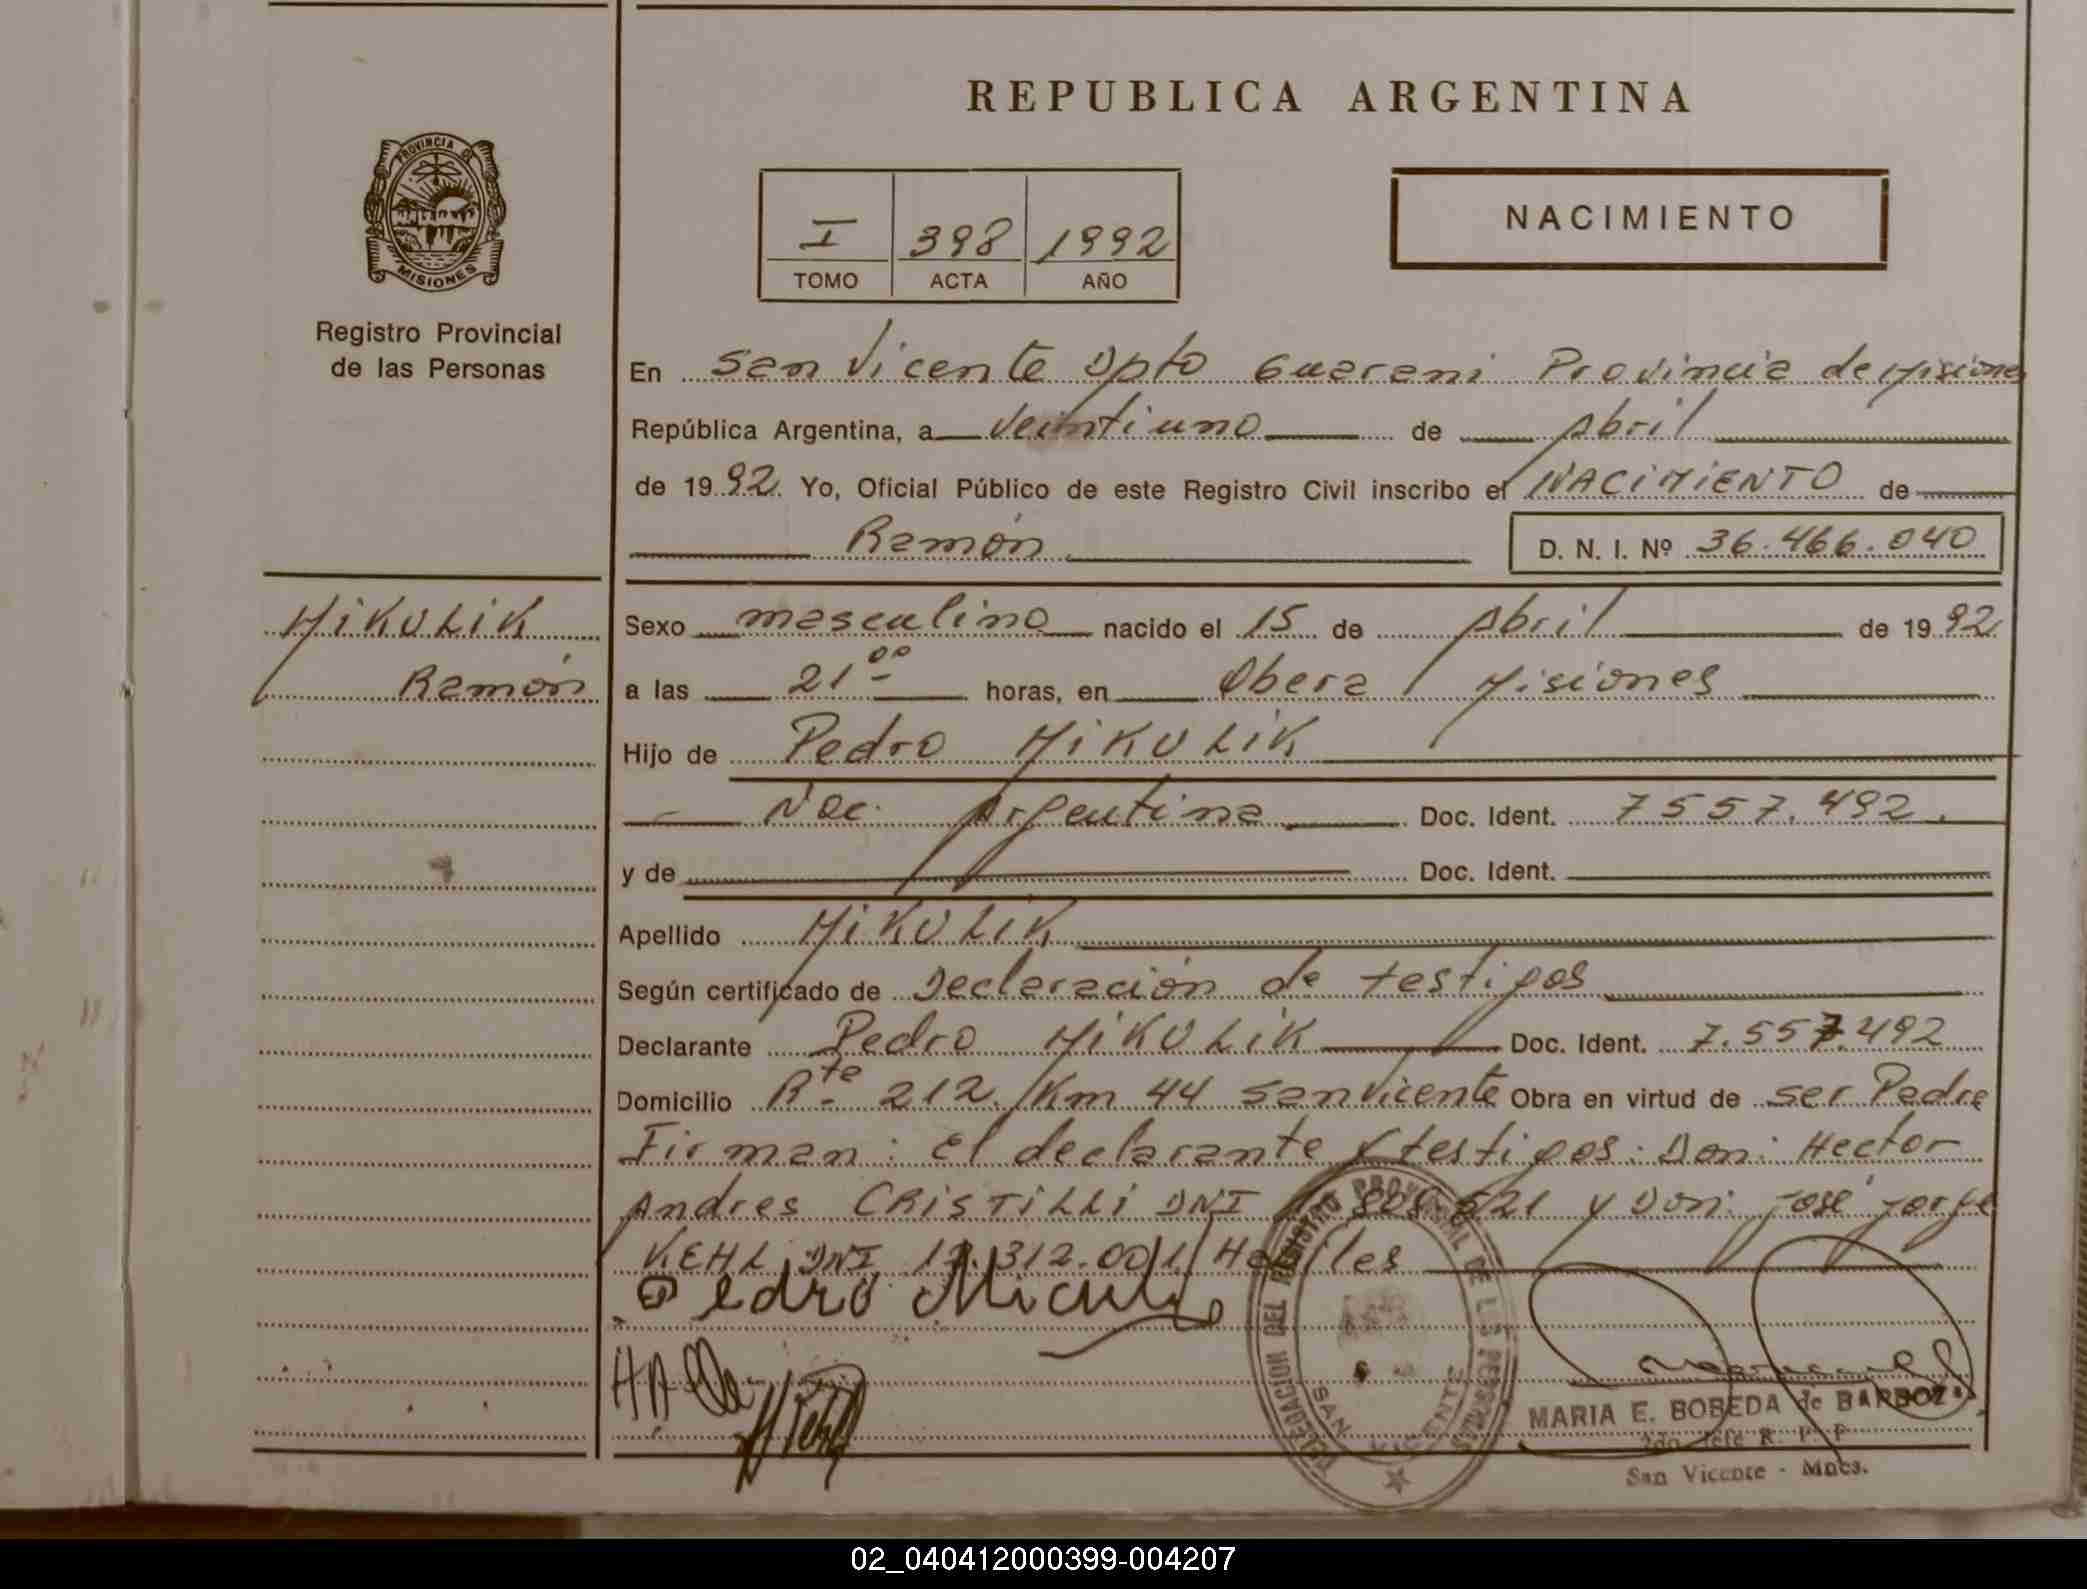 REPUBLICA ARGENTINA
PROVINCIA DE
MISIONES
Registro Provincial
de las Personas
I 398 1992
TOMO ACTA AÑO
NACIMIENTO
En San Vicente Dpto Guarani Provincia de Misiones
República Argentina, a veintiuno de Abril
de 1992. Yo, Oficial Público de este Registro Civil inscribo el NACIMIENTO de
Ramón D. N. I. Nº 36.466.040
MIKULIK
Ramón
Sexo masculino nacido el 15 de Abril de 1992
a las 21 00 horas, en Obera Misiones
Hijo de Pedro MIKULIK
Nac. Argentina Doc. Ident. 7557.492.
y de Doc. Ident.
Apellido MIKULIK
Según certificado de Declaración de testigos
Declarante Pedro MIKULIK Doc. Ident. 7.557.492
Domicilio Rta 212 Km 44 San Vicente Obra en virtud de ser Padre
Firman: El declarante y testigos: Don: Hector
Andres CRISTILLI DNI y Don: José Jorge
KEHL DNI Habiles
Pedro
DELEGACION DEL REGISTRO PROVINCIAL DE LAS PERSONAS
SAN VICENTE
MARIA E. BOBEDA de BARBOZA
2do Jefe R. P. P
San Vicente - Mnes.
02_040412000399-004207